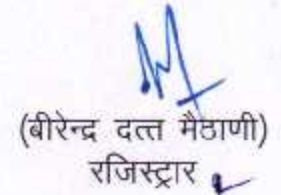 (बीरेन्द्र दत्त मैठाणी)
रजिस्ट्रार